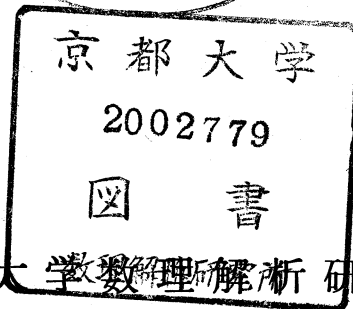 京都大学
2002779
図書
大学数理解析研